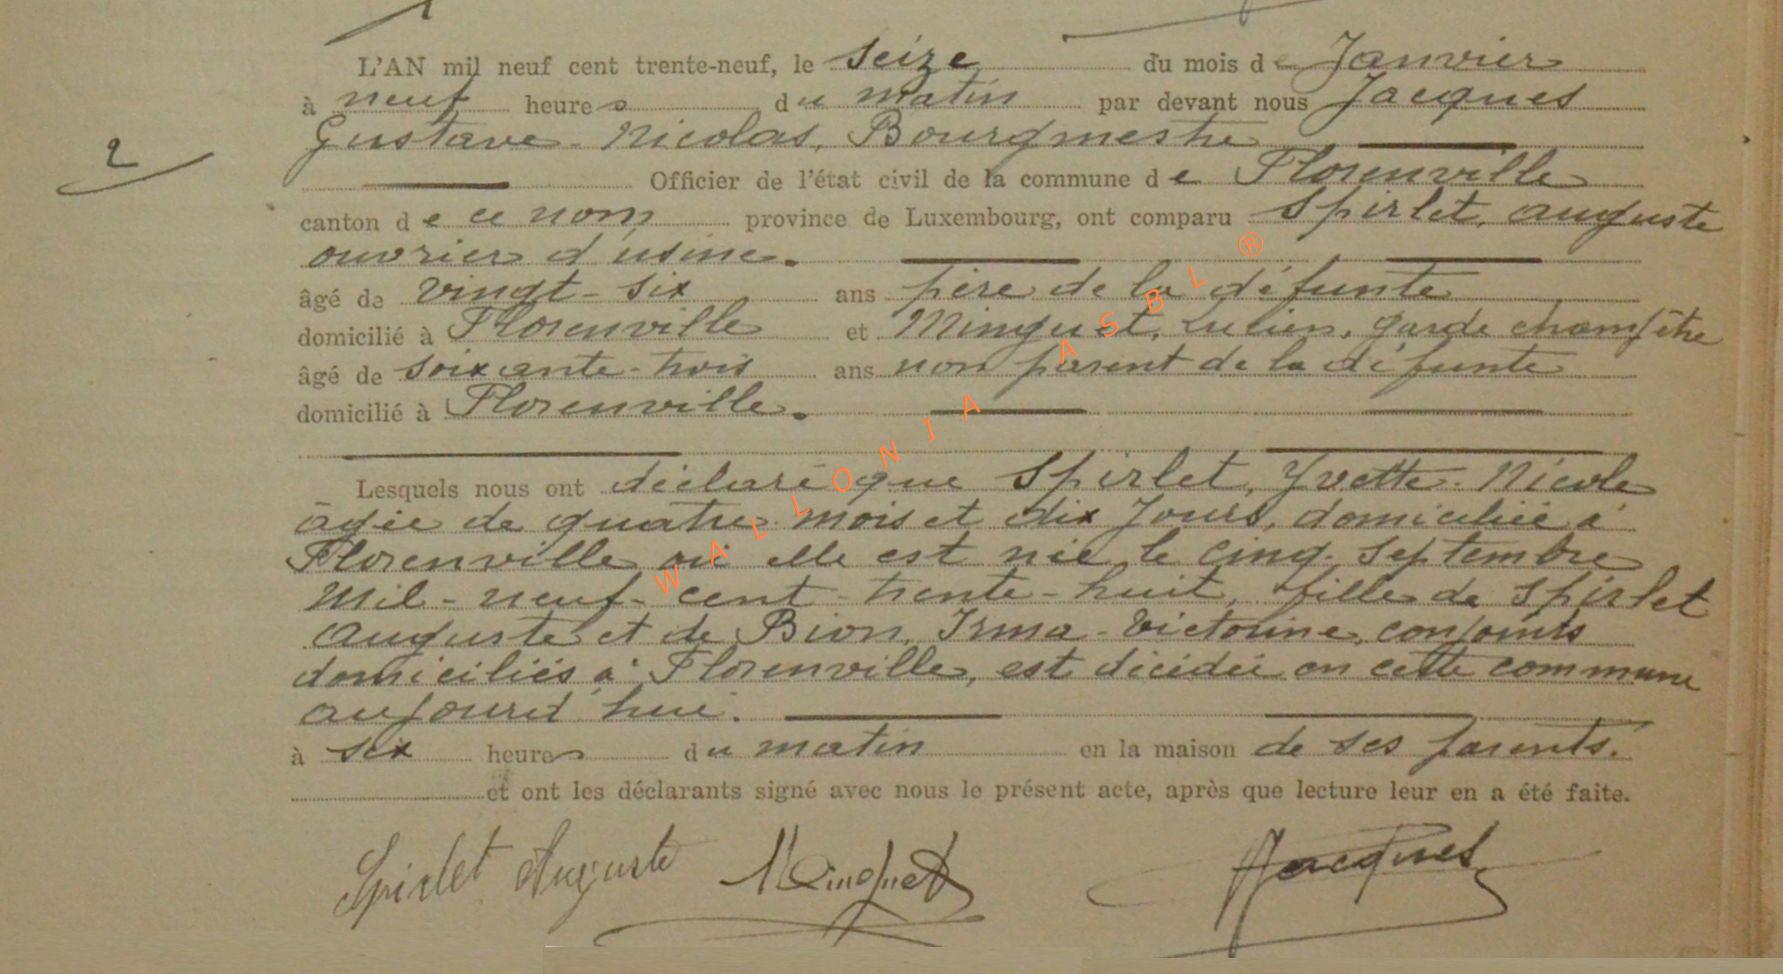 L'AN mil neuf cent trente-neuf, le seize du mois de Janvier
à neuf heures du matin par devant nous Jacques
Gustave-Nicolas, Bourgmestre
2
Officier de l'état civil de la commune de Florenville
canton de ce nom province de Luxembourg, ont comparu Spirlet, Auguste
ouvrier d'usine.
âgé de vingt-six ans père de la défunte
domicilié à Florenville et Minguet, Lulien, garde champêtre
âgé de soixante-trois ans non parent de la défunte
domicilié à Florenville.
Lesquels nous ont déclaré que Spirlet, Yvette-Nicole
âgée de quatre mois et dix Jours, domiciliée à
Florenville où elle est née le cinq Septembre
mil-neuf-cent-trente-huit, fille de Spirlet
Auguste et de Bion, Irma-Victorine, conjoints
domiciliés à Florenville, est décédée en cette commune
aujourd'hui.
à six heures du matin en la maison de ses parents.
et ont les déclarants signé avec nous le présent acte, après que lecture leur en a été faite.
Spirlet Auguste Minguet Jacques
WALLONIA ASBL ®